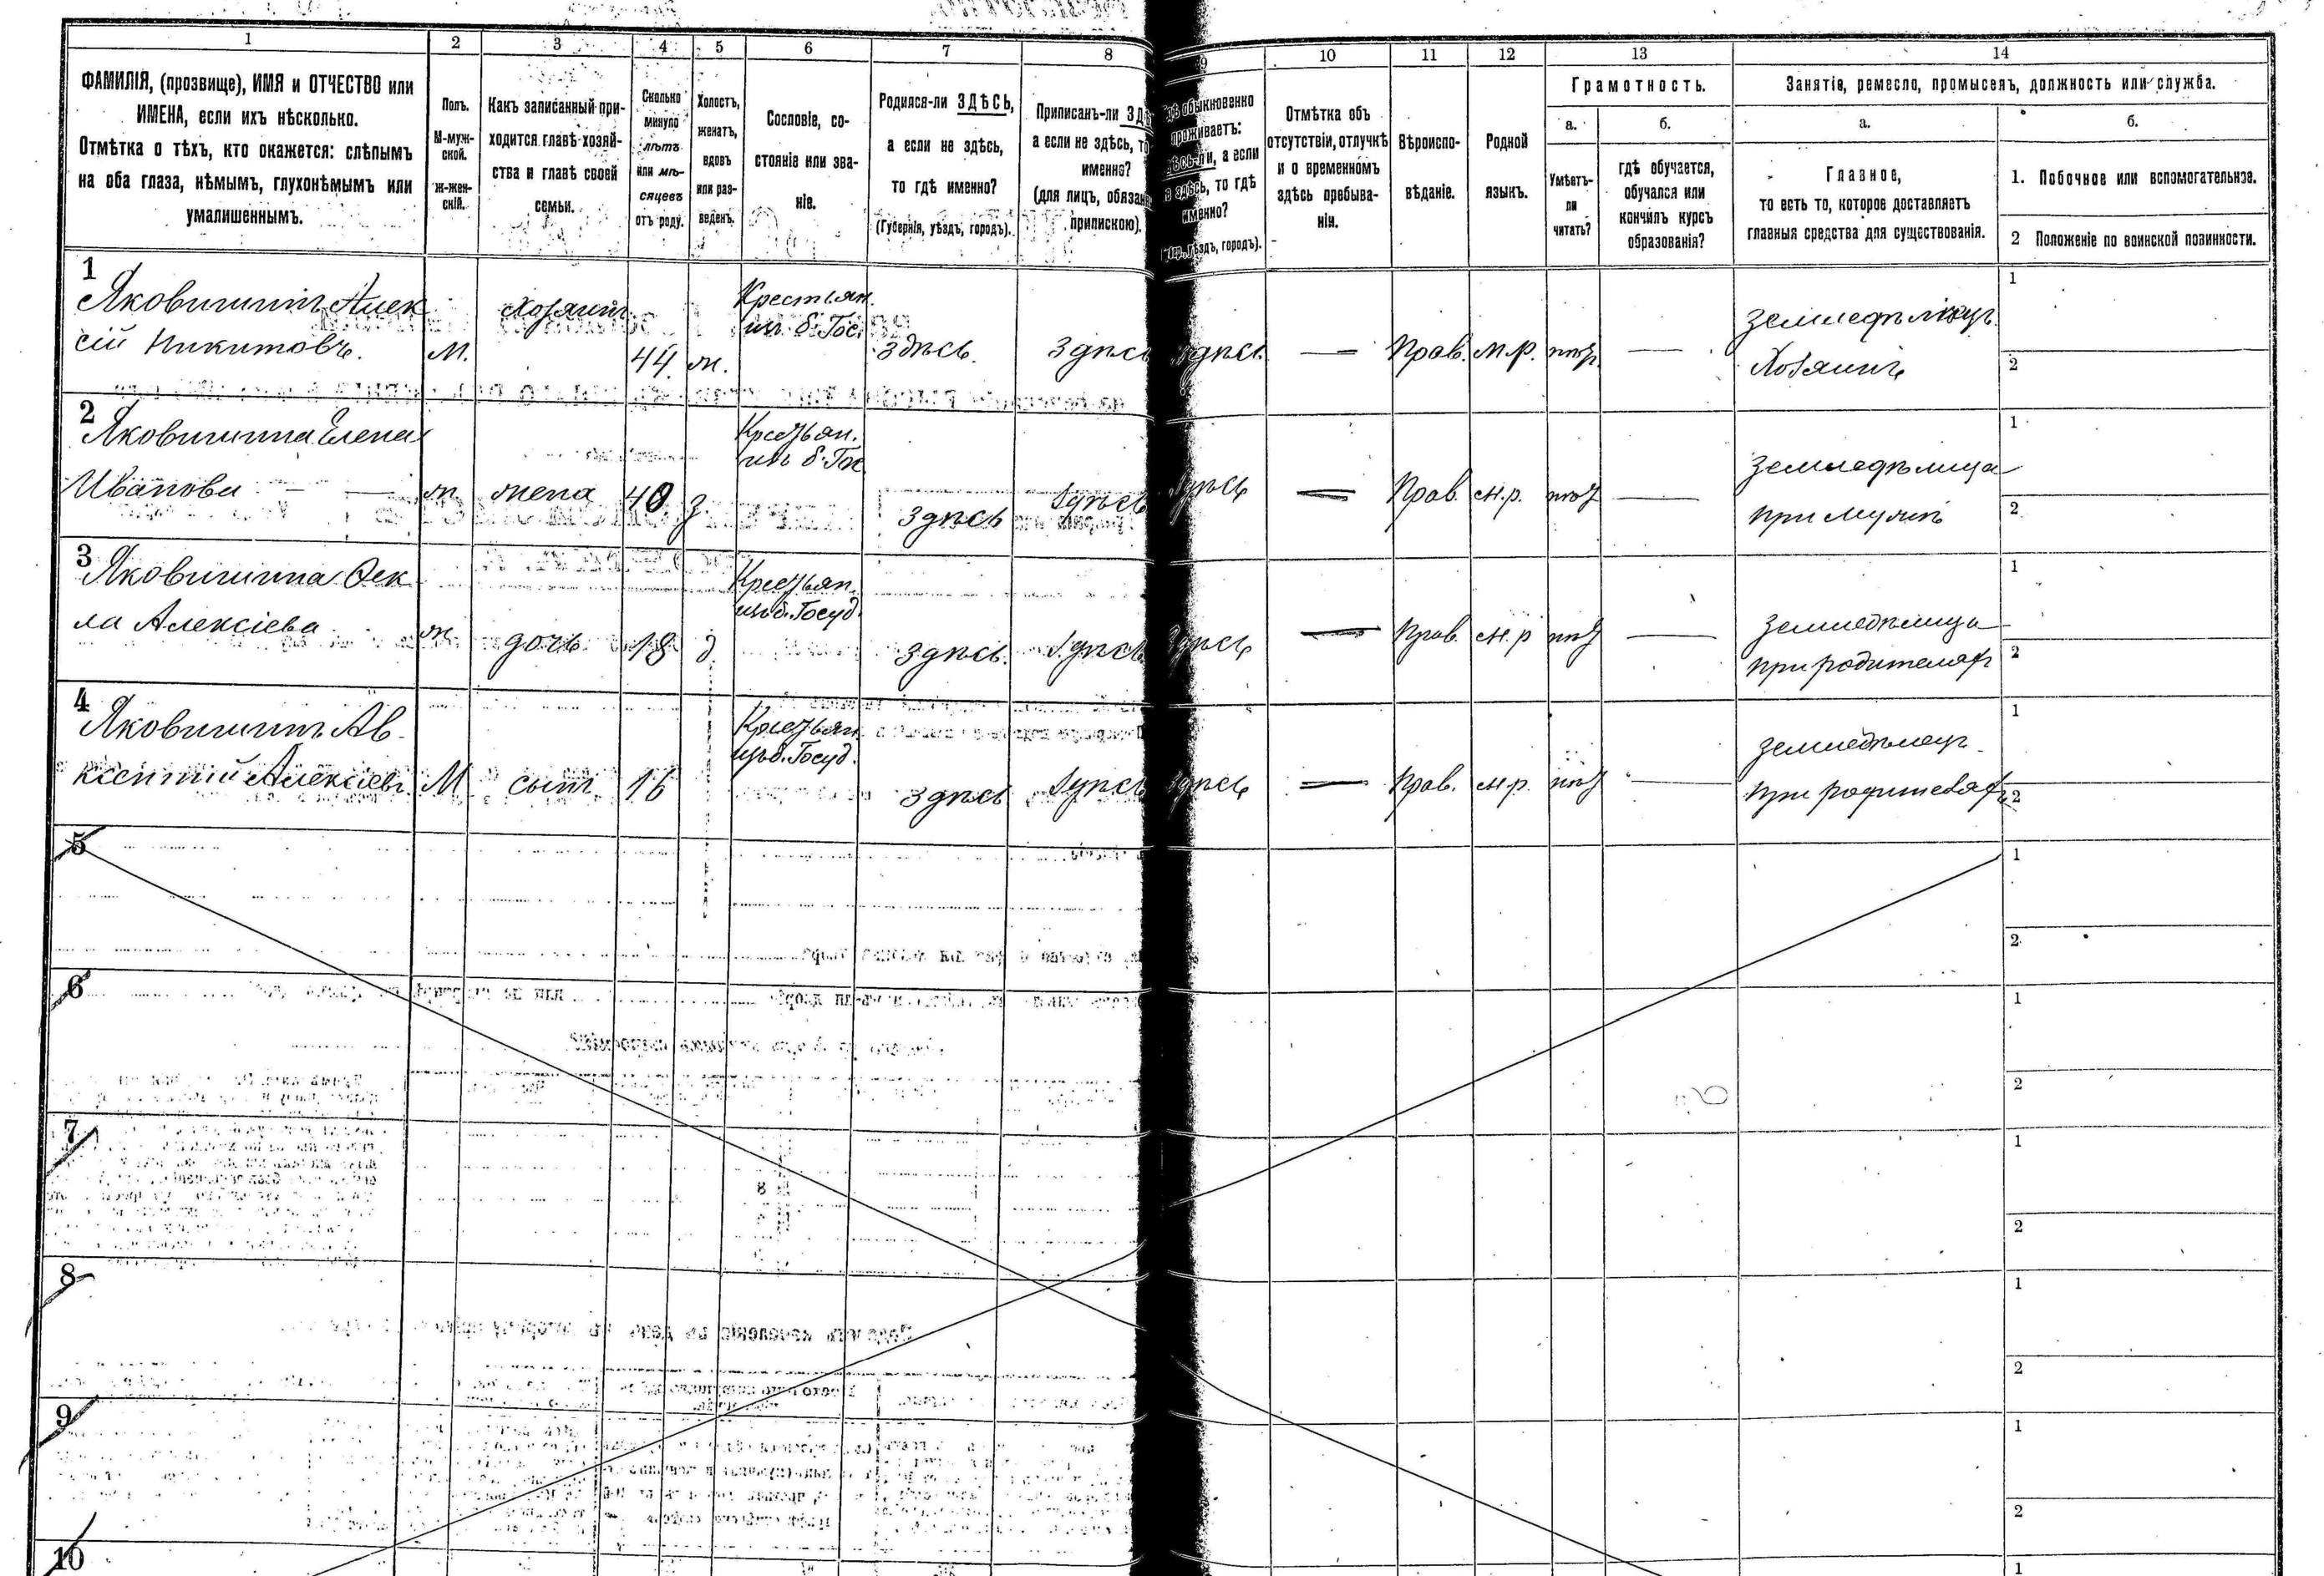 1 2 3 4 5 6 7 8 9 10 11 12 13 14
ФАМИЛІЯ, (прозвище), ИМЯ и ОТЧЕСТВО или
ИМЕНА, если ихъ нѣсколько.
Отмѣтка о тѣхъ, кто окажется: слѣпымъ
на оба глаза, нѣмымъ, глухонѣмымъ или
умалишеннымъ.
Полъ.
М-муж-
ской.
ж-жен-
скій.
Какъ записанный при-
ходится главѣ хозяй-
ства и главѣ своей
семьи.
Сколько
минуло
лѣтъ
или мѣ-
сяцевъ
отъ роду.
Холостъ,
женатъ,
вдовъ
или раз-
веденъ.
Сословіе, со-
стояніе или зва-
ніе.
Родился-ли ЗДѢСЬ,
а если не здѣсь,
то гдѣ именно?
(Губернія, уѣздъ, городъ).
Приписанъ-ли
а если не здѣсь,
именно?
(для лицъ,
припискою).
обыкновенно
проживаетъ:
а если
то гдѣ
именно?
городъ).
Отмѣтка объ
отсутствіи, отлучкѣ
и о временномъ
здѣсь пребыва-
ніи.
Вѣроиспо-
вѣданіе.
Родной
языкъ.
Грамотность.
а.
Умѣетъ-
ли
читать?
б.
гдѣ обучается,
обучался или
кончилъ курсъ
образованія?
Занятіе, ремесло, промыселъ, должность или служба.
а.
Главное,
то есть то, которое доставляетъ
главныя средства для существованія.
б.
1. Побочное или вспомогательное.
2 Положеніе по воинской повинности.
1
Яковишинъ Алек
сій Никитовъ.
М.
Хозяинъ
44
ж.
Крестьян.
изъ б. Гос.
здѣсь.
здѣсь
здѣсь.
—
Прав.
м.р.
нѣтъ
—
земледѣлецъ
Хозяинъ
1
2
2
Яковишина Елена
Иванова —
ж
жена
40
з.
Крестьян.
изъ б. Гос
здѣсь
здѣсь
здѣсь
—
Прав.
м.р.
нѣтъ
—
земледѣлица
при мужѣ
1
2
3
Яковишина Фек
ла Алексіева
ж
дочь
18
д
Крестьян
изъ б. Госуд.
здѣсь.
здѣсь
здѣсь
—
Прав.
м.р
нѣтъ
—
земледѣлица
при родителяхъ
1
2
4
Яковишинъ Ав
ксентій Алексіевъ.
М
сынъ
16
Крестьян
изъ б. Госуд.
здѣсь
здѣсь
здѣсь
—
Прав.
м.р.
нѣтъ
—
земледѣлецъ
при родителяхъ
1
2
5
1
2
6
1
2
7
1
2
8
1
2
9
1
2
10
1